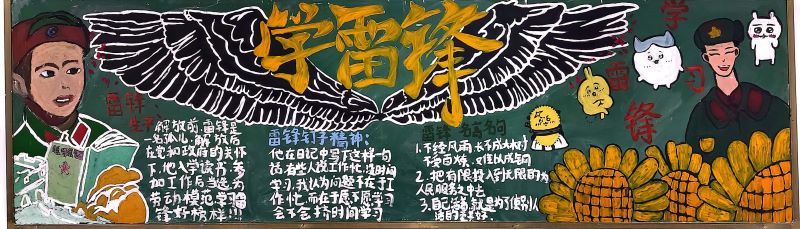 学雷锋
学习
雷锋
雷锋
生平
解放前,雷锋是
名孤儿,解放后
在党和政府的关怀
下,他入学读书,参
加工作后当选为
劳动模范,学习
锋好榜样!!!
雷锋钉子精神:
他在日记中写下这样一句
话:有些人说工作忙,没时间
学习,我认为问题不在于工
作忙,而在于愿不愿学习
会不会挤时间学习
雷锋名言句
1.不经风雨,长不成大树
不受百炼,
2.把有限投入到无限的为
人民服务之中去
3.自己活着,就是为了使别人
活的更美好